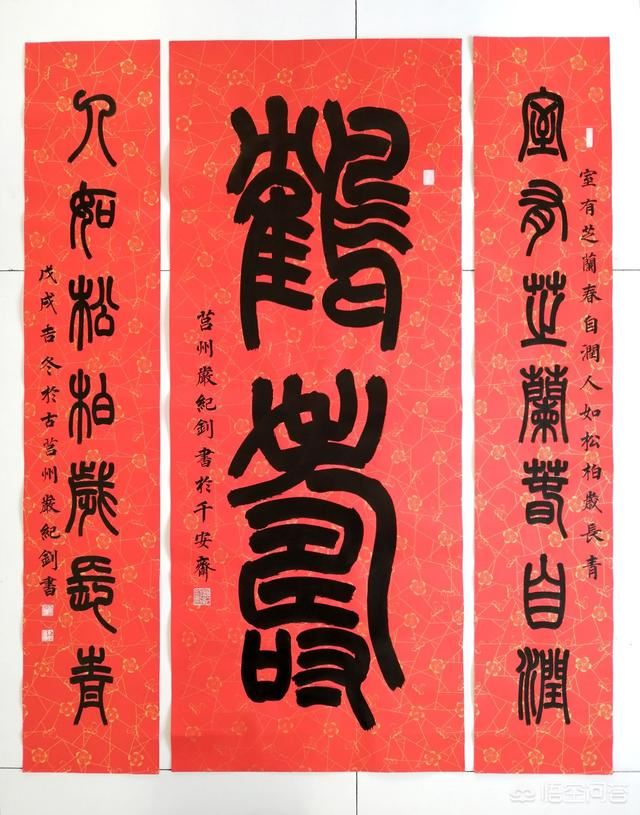 室有芝蘭春自潤人如松柏歲長青
室有芝蘭春自潤
鶴壽
莒州嚴紀釗書於千安齋
人如松柏歲長青
戊戌吉冬於古莒州嚴紀釗書
悟空问答